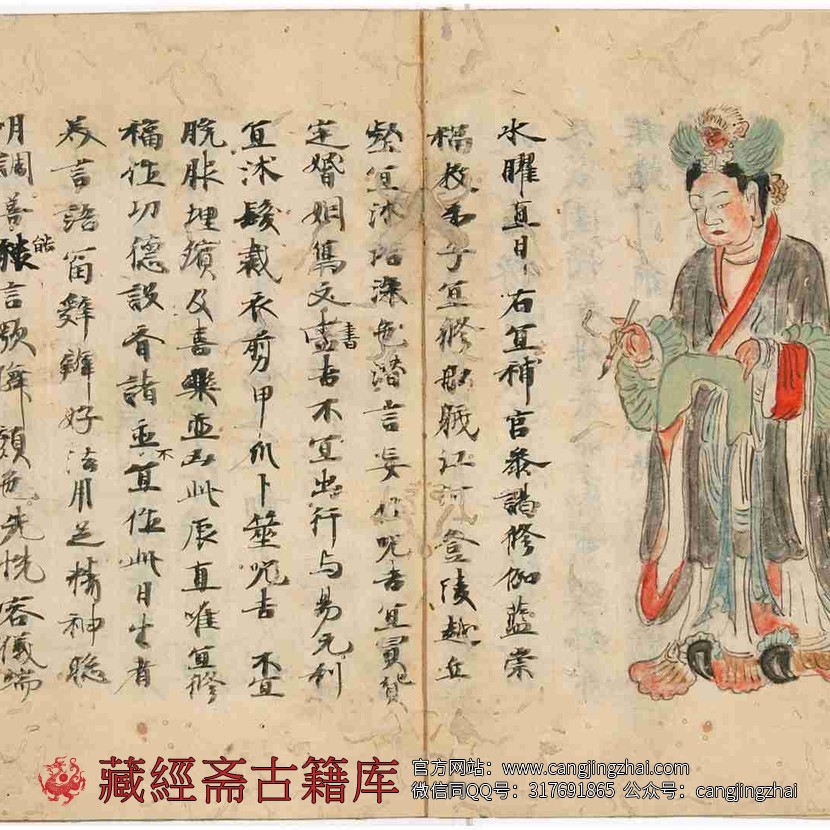 水曜直日右宜補官參謁修伽藍崇
福教弟子宜修船栰江河登陵越丘
宜沐浴深色潜言妄作呪吉宜買貨
定婚姻雋文書吉不宜出行与易元利
宜沐髮裁衣剪甲爪卜筮呪吉不宜
脘胀埋殯及喜樂並此辰直唯宜修
福作功德設齋諸並不宜作此日生者
為言語當辯辦好活用足精神聡
明調善能言歌舞顏色先悅容儀端
藏經斋古籍库
官方网站：www.cangjingzhai.com
微信同QQ号：317691865 公众号：cangjingzhai